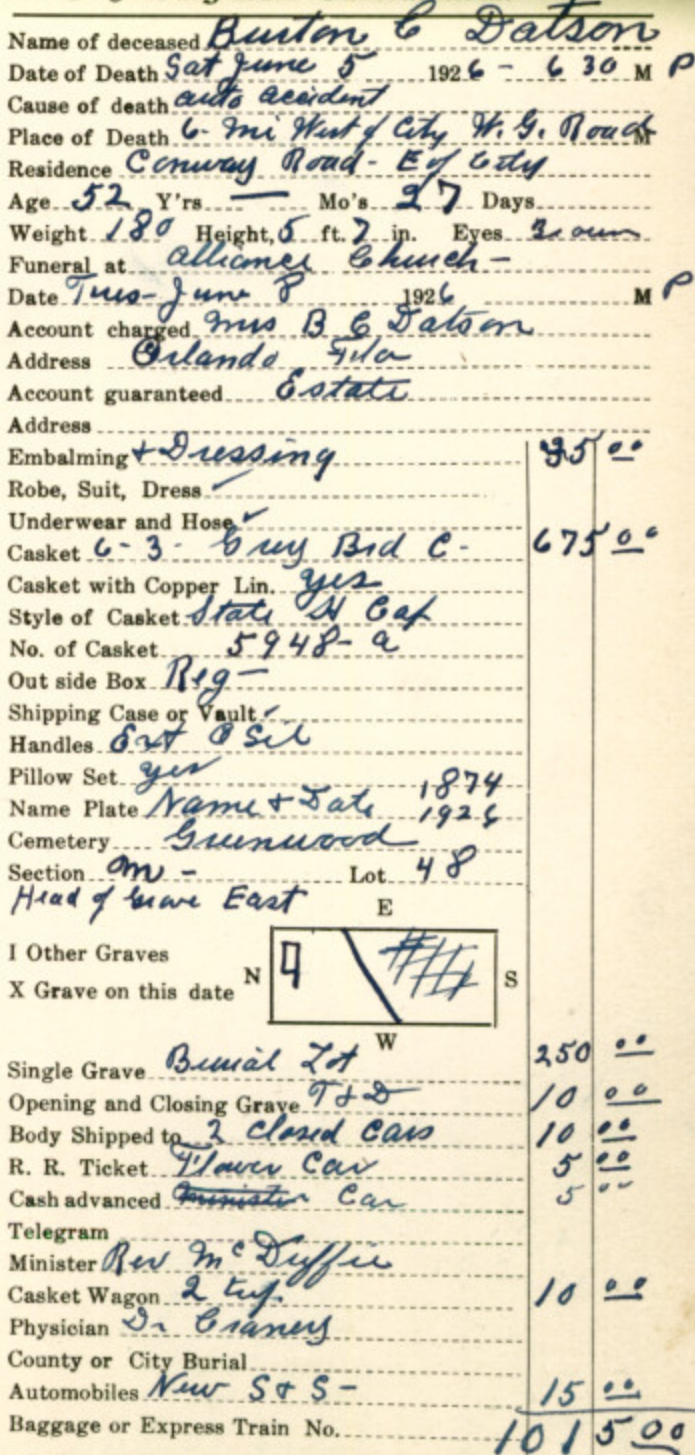 Name of deceased Burton C Datson
Date of Death Sat June 5 1926 - 6 30 M P
Cause of death auto accident
Place of Death 6 - mi West of City W. G. Road M
Residence Conway Road - E of City
Age 52 Y'rs — Mo's 27 Days
Weight 180 Height, 5 ft. 7 in. Eyes Brown
Funeral at Alliance Church -
Date Tues - June 8 1926 M P
Account charged Mrs B C Datson
Address Orlando Fla
Account guaranteed Estate
Address
Embalming + Dressing 35 00
Robe, Suit, Dress ✓
Underwear and Hose ✓
Casket 6 - 3 - Grey Brd C - 675 00
Casket with Copper Lin. yes
Style of Casket State H Cap
No. of Casket 5948 - a
Out side Box Reg -
Shipping Case or Vault ✓
Handles Ext Sil
Pillow Set yes
Name Plate Name + Date 1874 1926
Cemetery Greenwood
Section M - Lot 48
Head of Grave East
E
I Other Graves
X Grave on this date
N S
W
Single Grave Burial Lot 250 00
Opening and Closing Grave T & D 10 00
Body Shipped to 2 Closed Cars 10 00
R. R. Ticket Flower Car 5 00
Cash advanced Minister Car 5 00
Telegram
Minister Rev McDuffie
Casket Wagon 2 10 00
Physician Dr
County or City Burial
Automobiles New S & S - 15 00
Baggage or Express Train No. 1015 00